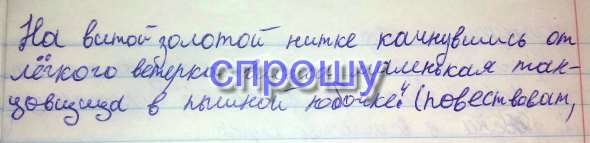 На витой золотой нитке качнувшись от
лёгкого ветерка спрошу маленькая тан-
цовщица в пышной юбочке." (повествоват,